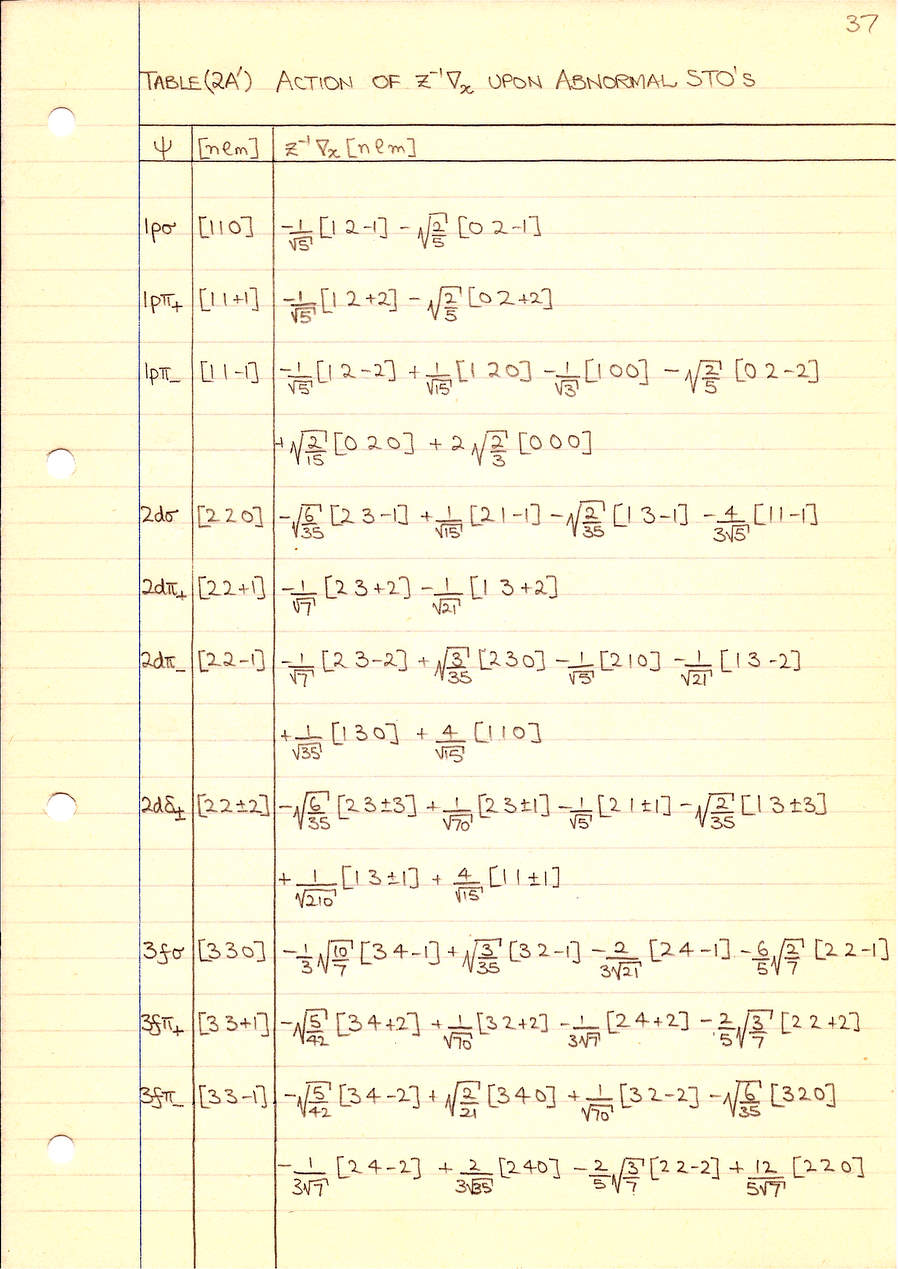 37
TABLE(2A') ACTION OF Z⁻¹∇ₓ UPON ABNORMAL STO'S
ψ [nℓm] Z⁻¹∇ₓ[nℓm]
1pσ [110] -1/√5 [1 2 -1] - √(2/5) [0 2 -1]
1pπ₊ [11+1] -1/√5 [1 2 +2] - √(2/5) [0 2 +2]
1pπ₋ [11-1] -1/√5 [1 2 -2] + 1/√15 [1 2 0] - 1/√3 [1 0 0] - √(2/5) [0 2 -2]
+√(2/15) [0 2 0] + 2√(2/3) [0 0 0]
2dσ [220] -√(6/35) [2 3 -1] + 1/√15 [2 1 -1] - √(2/35) [1 3 -1] - 4/(3√5) [1 1 -1]
2dπ₊ [22+1] -1/√7 [2 3 +2] - 1/√21 [1 3 +2]
2dπ₋ [22-1] -1/√7 [2 3 -2] + √(3/35) [2 3 0] - 1/√5 [2 1 0] - 1/√21 [1 3 -2]
+ 1/√35 [1 3 0] + 4/√15 [1 1 0]
2dδ± [22±2] -√(6/35) [2 3 ±3] + 1/√70 [2 3 ±1] - 1/√5 [2 1 ±1] - √(2/35) [1 3 ±3]
+ 1/√210 [1 3 ±1] + 4/√15 [1 1 ±1]
3fσ [330] -1/3 √(10/7) [3 4 -1] + √(3/35) [3 2 -1] - 2/(3√21) [2 4 -1] - 6/5 √(2/7) [2 2 -1]
3fπ₊ [33+1] -√(5/42) [3 4 +2] + 1/√70 [3 2 +2] - 1/(3√7) [2 4 +2] - 2/5 √(3/7) [2 2 +2]
3fπ₋ [33-1] -√(5/42) [3 4 -2] + √(2/21) [3 4 0] + 1/√70 [3 2 -2] - √(6/35) [3 2 0]
- 1/(3√7) [2 4 -2] + 2/(3√35) [2 4 0] - 2/5 √(3/7) [2 2 -2] + 12/(5√7) [2 2 0]